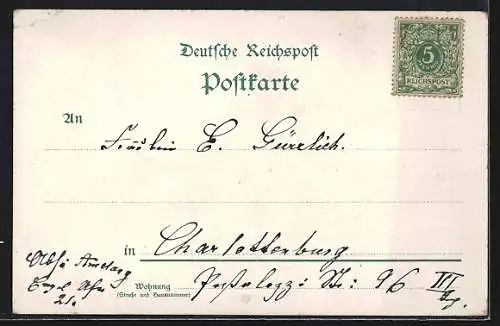 Deutsche Reichspost
Postkarte
5
REICHSPOST
An
Fräulein E. Gürrlich.
in Charlottenburg
Wohnung
(Straße und Hausnummer)
Pestalozzi Str: 96 III
Abs:
21.